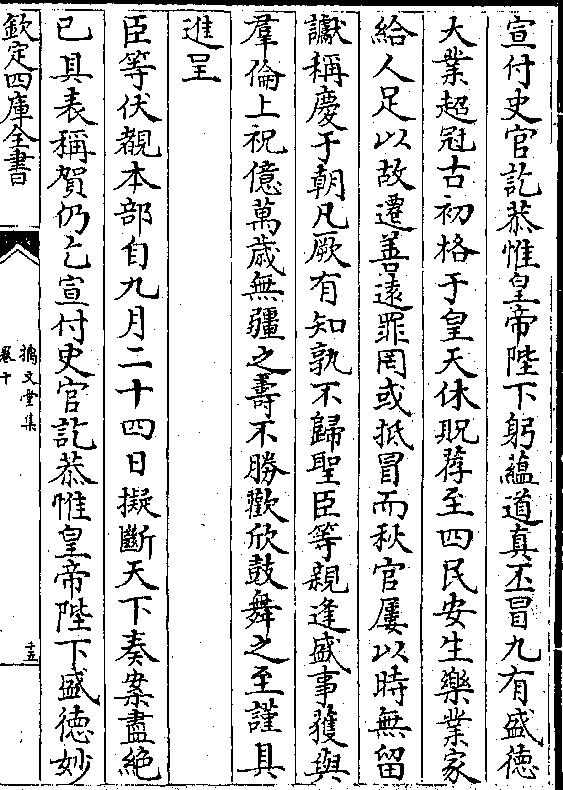 宣付史官訖恭惟皇帝陛下躬蘊道真丕冒九有盛德
大業超冠古初格于皇天休貺荐至四民安生樂業家
給人足以故遷善逺罪罔或抵冒而秋官屢以時無留
讞稱慶于朝凡厥有知孰不歸聖臣等親逢盛事獲與
羣倫上祝億萬歳無疆之壽不勝歡欣鼓舞之至謹具
進呈
臣等伏覩本部自九月二十四日擬斷天下奏案盡絶
已具表稱賀仍乞宣付史官訖恭惟皇帝陛下盛徳妙
欽定四庫全書
摛文堂集
卷十
十三